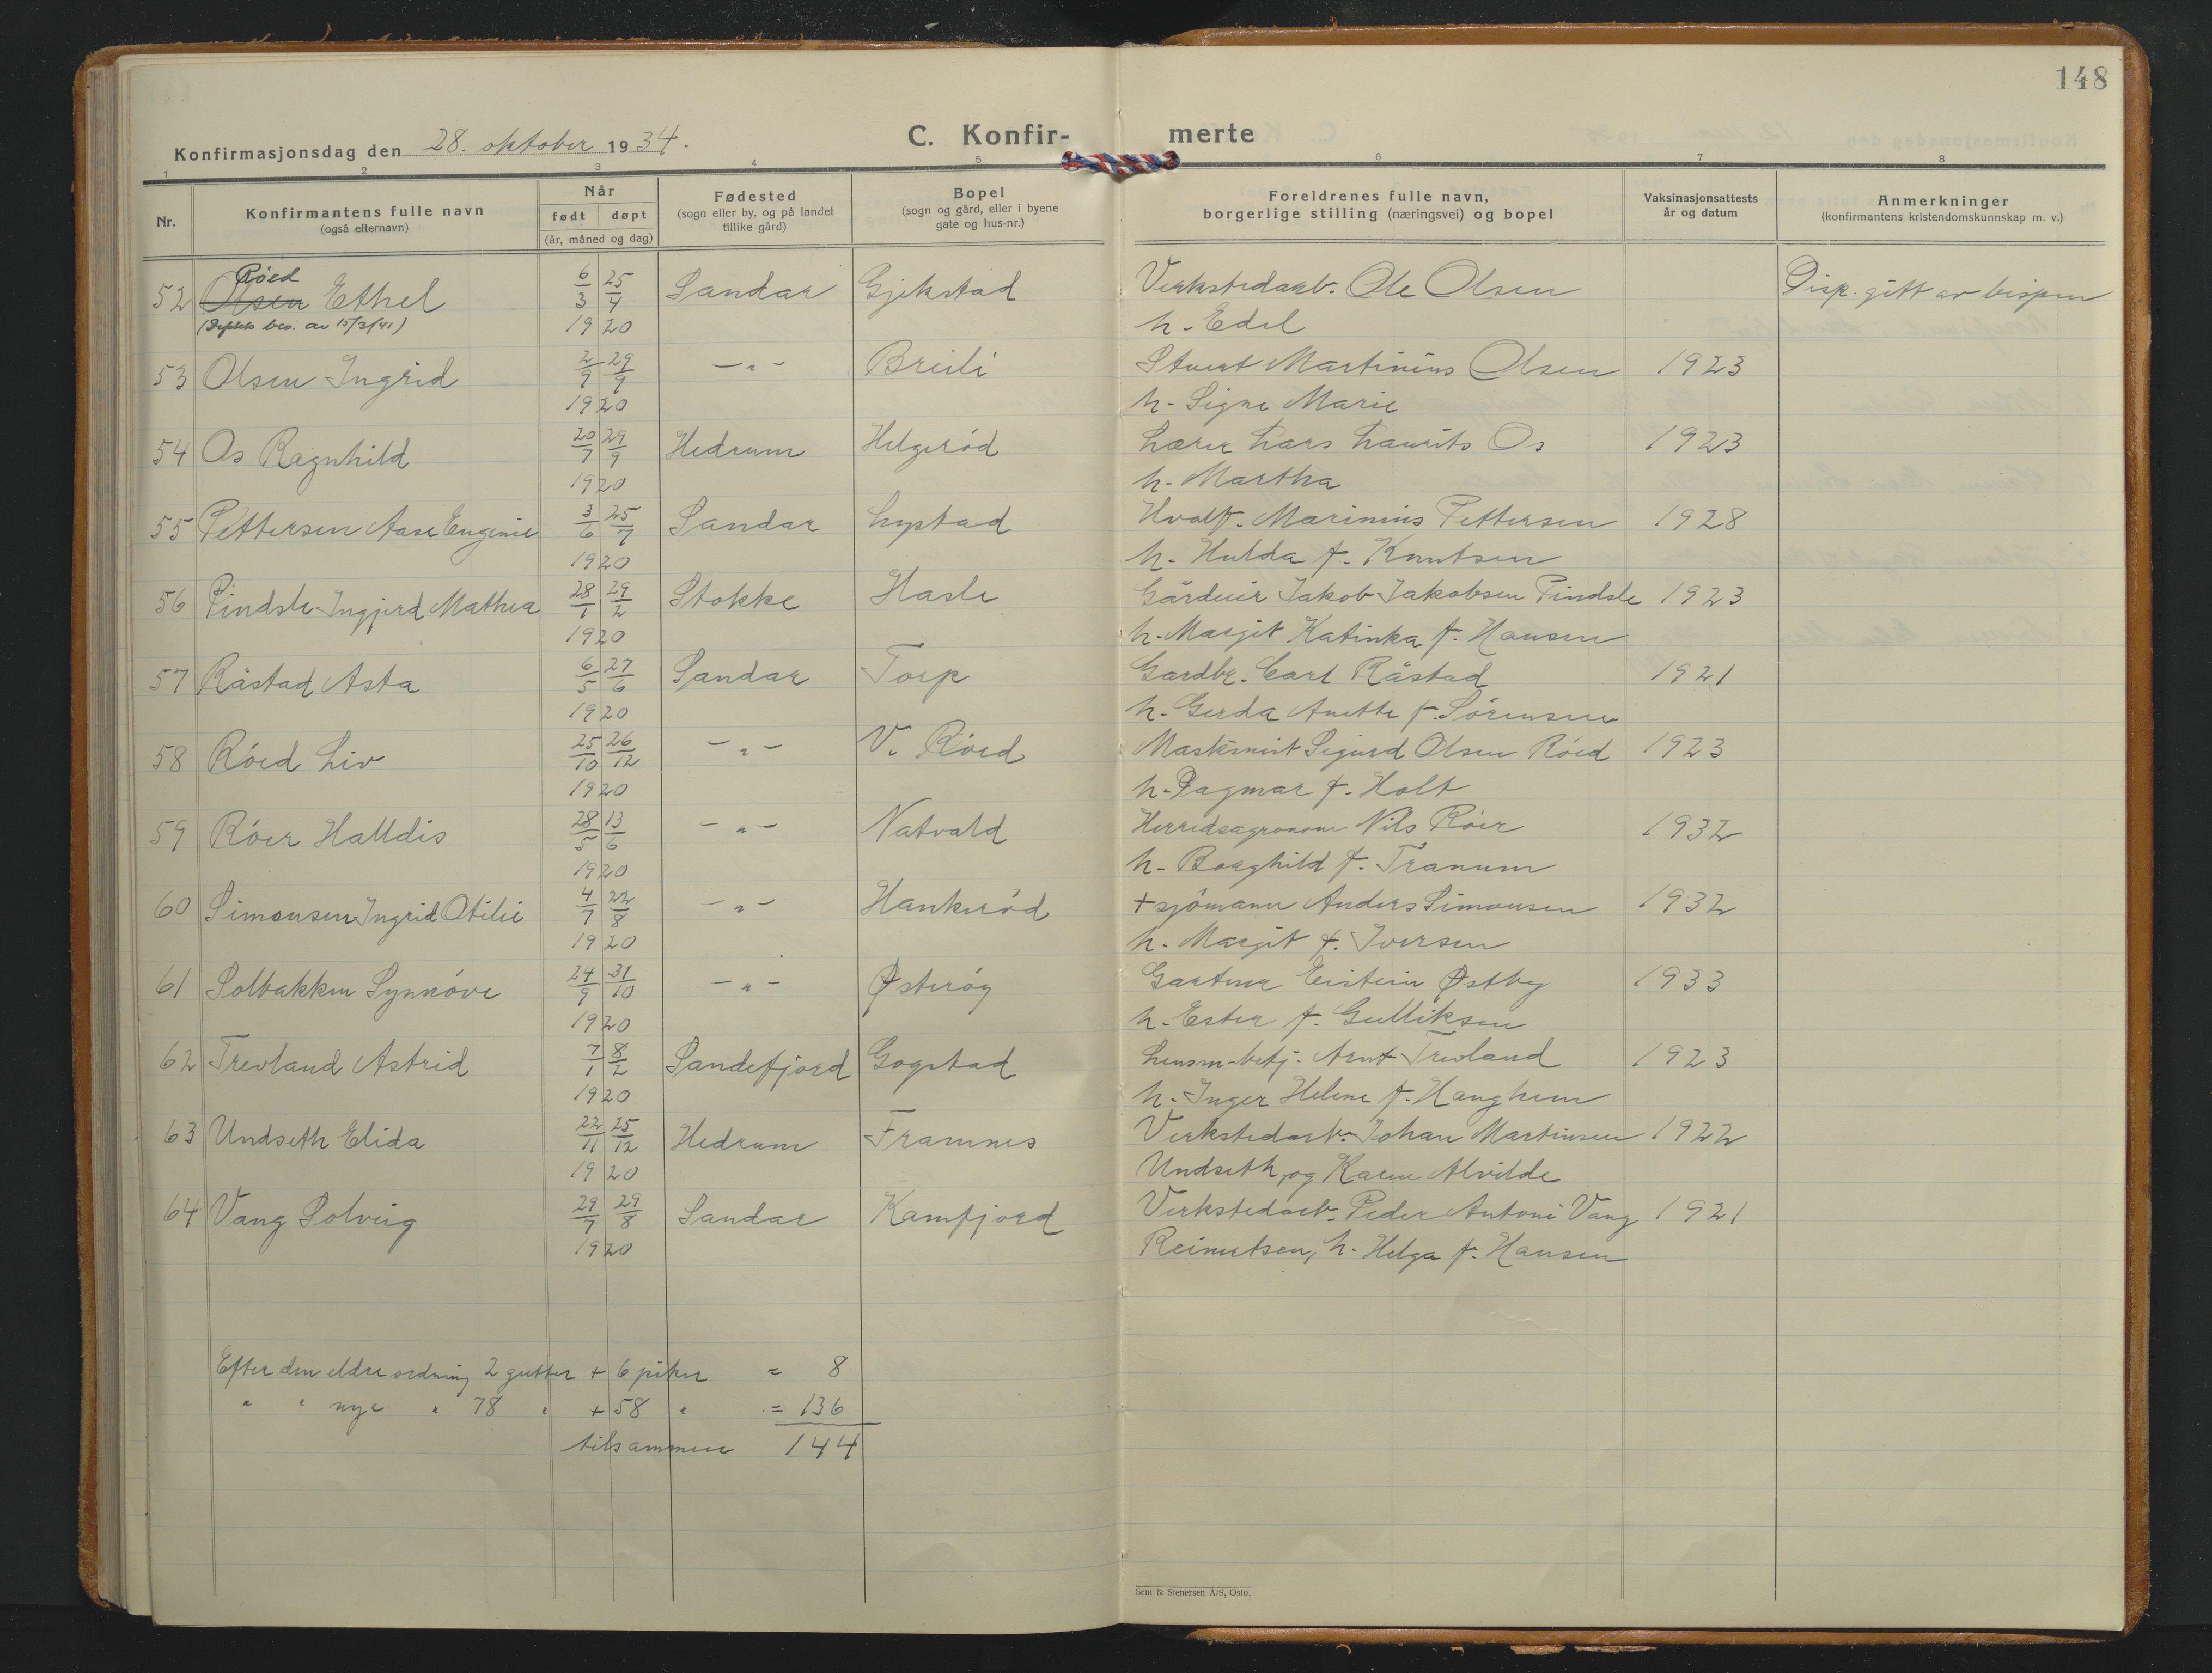 148
Konfirmasjonsdag den 28. oktober 1934.
C. Konfir- merte
1 2 3 4 5 6 7 8
Nr.
Konfirmantens fulle navn
(også efternavn)
Når
født døpt
(år, måned og dag)
Fødested
(sogn eller by, og på landet
tillike gård)
Bopel
(sogn og gård, eller i byene
gate og hus-nr.)
Foreldrenes fulle navn,
borgerlige stilling (næringsvei) og bopel
Vaksinasjonsattests
år og datum
Anmerkninger
(konfirmantens kristendomskunnskap m. v.)
Røed
52 Olsen Ethel 6/3 25/4 Sandar Gjekstad Verkstedarb. Ole Olsen Disp. gitt av bispen
bev. av 15/3/41) 1920 h. Edel
53 Olsen Ingrid 2/9 29/9 - " - Breili Stuert Martinius Olsen 1923
1920 h. Signe Marie
54 Os Ragnhild 20/7 29/9 Hedrum Helgerød Lærer Lars Laurits Os 1923
1920 h. Martha
55 Pettersen Aase Eugenie 3/6 25/7 Sandar Lystad Hvalf. Marinius Pettersen 1928
1920 h. Hulda f. Knutsen
56 Pindsle Ingjerd Mathea 28/1 29/2 Stokke Hasle Gårdeier Jakob Jakobsen Pindsle 1923
1920 h. Margit Katinka f. Hansen
57 Råstad Asta 6/5 27/6 Sandar Torp Gardbr. Carl Råstad 1921
1920 h. Gerda Anette f. Sørensen
58 Røed Liv 25/10 26/12 - " - V. Røed Maskinist Sigurd Olsen Røed 1923
1920 h. Dagmar f. Holt
59 Røer Halldis 28/5 13/6 - " - Natvald Herredsagronom Nils Røer 1932
1920 h. Borghild f. Tranum
60 Simonsen Ingrid Otilie 4/7 22/8 - " - Haukerød + sjømann Anders Simonsen 1932
1920 h. Margit f. Iversen
61 Solbakken Synnøve 24/9 31/10 - " - Østerøy Gartner Eistein Østby 1933
1920 h. Ester f. Gulliksen
62 Trevland Astrid 7/1 8/2 Sandefjord Gogstad Lensm-betj. Arnt Trevland 1923
1920 h. Inger Helene f. Haughem
63 Undseth Elida 22/11 25/12 Hedrum Framnes Verkstedarb. Johan Martinsen 1922
1920 Undseth, og Karen Alvilde
64 Vang Solveig 29/7 29/8 Sandar Kamfjord Verkstedarb. Peder Antoni Vang 1921
1920 Reinertsen, h. Helga f. Hansen
Efter den eldre ordning 2 gutter + 6 piker = 8
" " nye " 78 " + 58 " = 136
tilsammen 144
Sem & Stenersen A/S, Oslo.